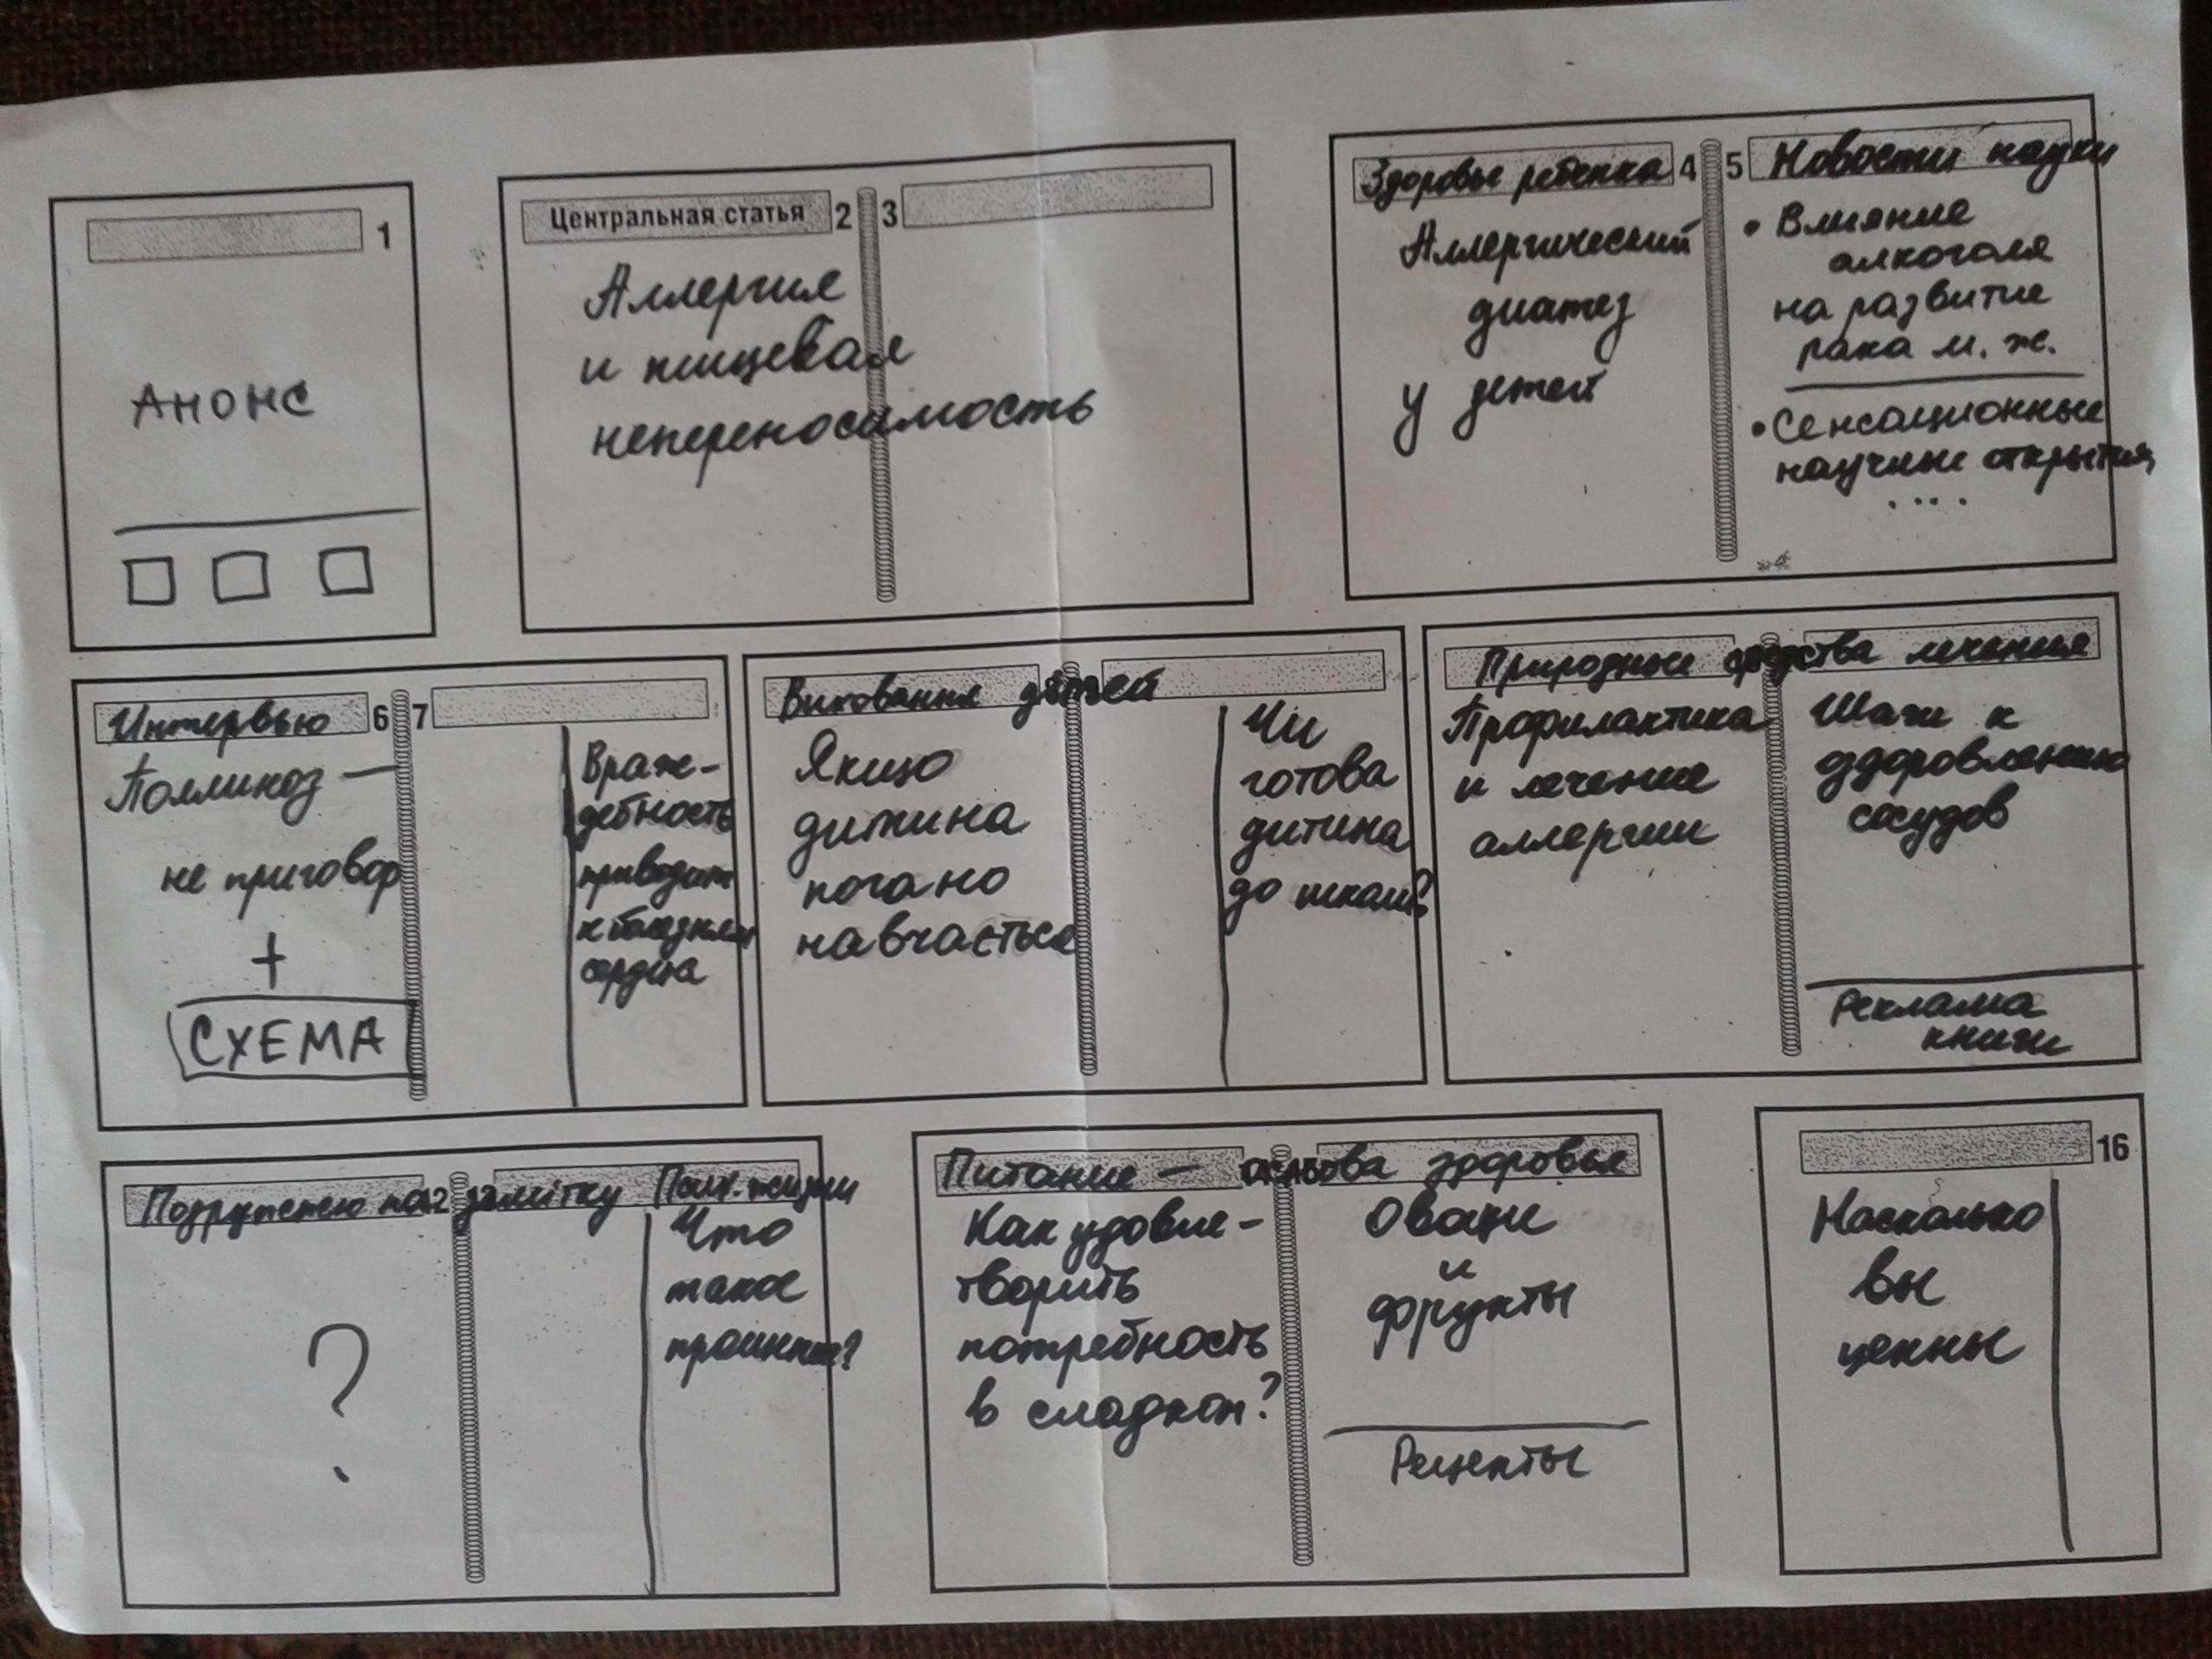 1
Анонс
Центральная статья 2 3
Аллергия
и пищевая
непереносимость
Здоровье ребенка 4
Аллергический
диатез
у детей
5 Новости науки
• Влияние
алкоголя
на развитие
рака м. ж.
• Сенсационные
научные открытия
....
Интервью 6 7
Поллиноз —
не приговор
+
СХЕМА
Враж-
дебность
приводит
к болезням
сердца
Виховання детей
Якщо
дитина
погано
навчається
Чи
готова
дитина
до школи?
Природные средства лечения
Профилактика
и лечение
аллергии
Шаги к
оздоровлению
сосудов
Реклама
книги
Подружжю на замітку
?
Псих. жизни
Что
такое
Питание — основа здоровья
Как удовле-
творить
потребность
в сладком?
Овощи
и
фрукты
Рецепты
16
Насколько
вы
ценны